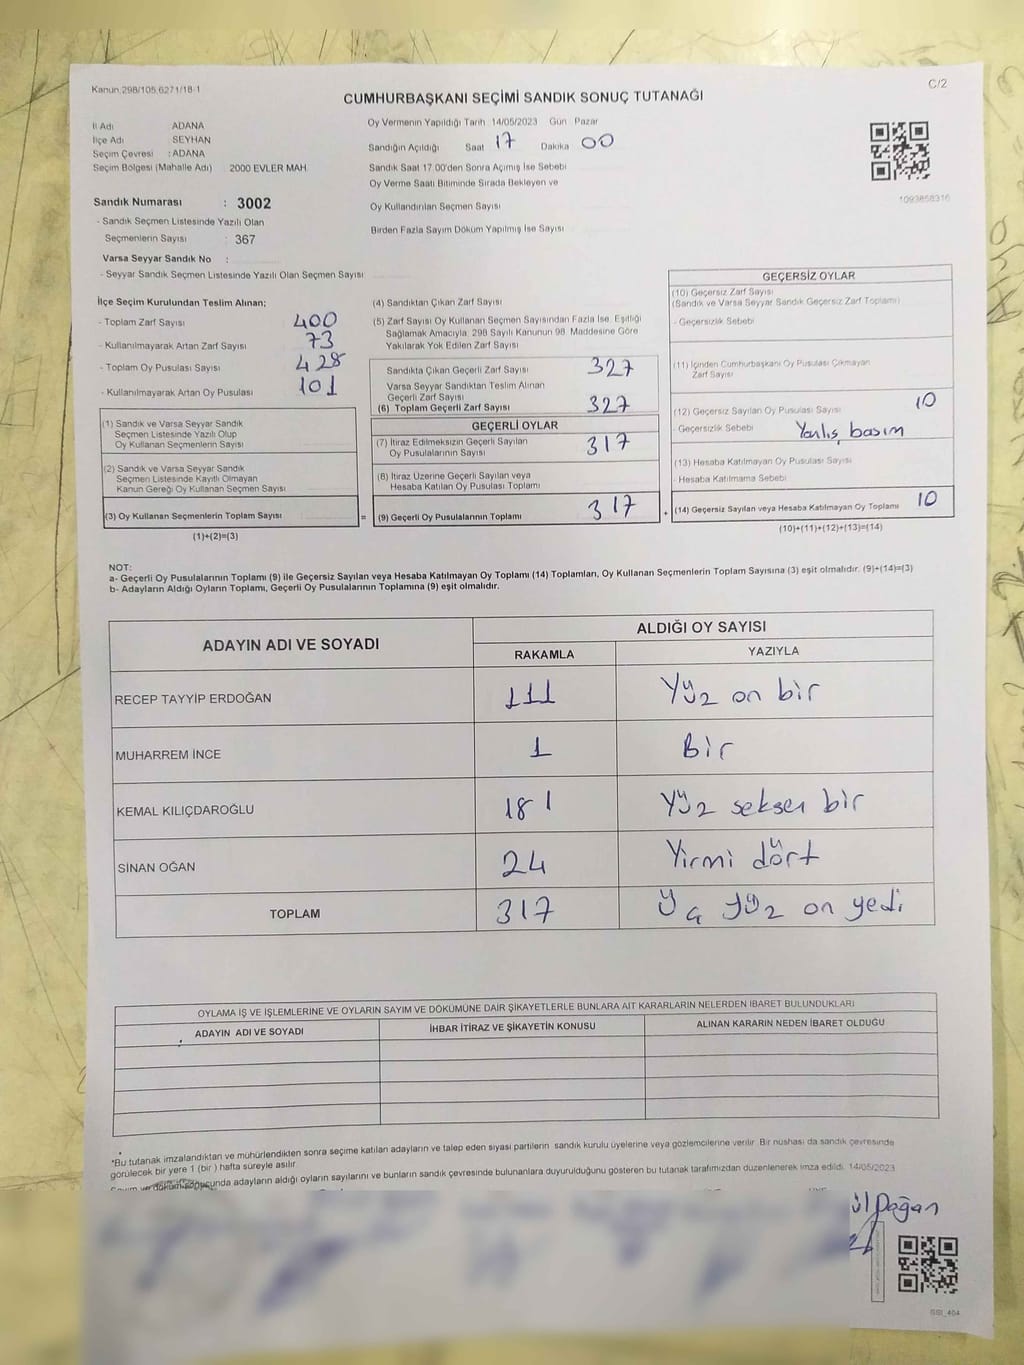 Kanun 298/105,6271/18-1
C/2
CUMHURBAŞKANI SEÇİMİ SANDIK SONUÇ TUTANAĞI
İl Adı : ADANA
İlçe Adı : SEYHAN
Seçim Çevresi : ADANA
Seçim Bölgesi (Mahalle Adı) 2000 EVLER MAH.
Sandık Numarası : 3002
- Sandık Seçmen Listesinde Yazılı Olan
Seçmenlerin Sayısı : 367
Varsa Seyyar Sandık No :
- Seyyar Sandık Seçmen Listesinde Yazılı Olan Seçmen Sayısı
Oy Vermenin Yapıldığı Tarih 14/05/2023 Gün : Pazar
Sandığın Açıldığı Saat 17 Dakika 00
Sandık Saat 17.00'den Sonra Açımış İse Sebebi
Oy Verme Saati Bitiminde Sırada Bekleyen ve
Oy Kullandırılan Seçmen Sayısı
Birden Fazla Sayım Döküm Yapılmış İse Sayısı
1093858316
İlçe Seçim Kurulundan Teslim Alınan;
- Toplam Zarf Sayısı 400
- Kullanılmayarak Artan Zarf Sayısı 73
- Toplam Oy Pusulası Sayısı 428
- Kullanılmayarak Artan Oy Pusulası 101
(1) Sandık ve Varsa Seyyar Sandık
Seçmen Listesinde Yazılı Olup
Oy Kullanan Seçmenlerin Sayısı
(2) Sandık ve Varsa Seyyar Sandık
Seçmen Listesinde Kayıtlı Olmayan
Kanun Gereği Oy Kullanan Seçmen Sayısı
(3) Oy Kullanan Seçmenlerin Toplam Sayısı
(1)+(2)=(3)
(4) Sandıktan Çıkan Zarf Sayısı
(5) Zarf Sayısı Oy Kullanan Seçmen Sayısından Fazla İse, Eşitliği
Sağlamak Amacıyla, 298 Sayılı Kanunun 98. Maddesine Göre
Yakılarak Yok Edilen Zarf Sayısı
Sandıkta Çıkan Geçerli Zarf Sayısı 327
Varsa Seyyar Sandıktan Teslim Alınan
Geçerli Zarf Sayısı
(6) Toplam Geçerli Zarf Sayısı 327
GEÇERLİ OYLAR
(7) İtiraz Edilmeksizin Geçerli Sayılan
Oy Pusulalarının Sayısı 317
(8) İtiraz Üzerine Geçerli Sayılan veya
Hesaba Katılan Oy Pusulası Toplamı
= (9) Geçerli Oy Pusulalarının Toplamı 317
GEÇERSİZ OYLAR
(10) Geçersiz Zarf Sayısı
(Sandık ve Varsa Seyyar Sandık Geçersiz Zarf Toplamı)
- Geçersizlik Sebebi
(11) İçinden Cumhurbaşkanı Oy Pusulası Çıkmayan
Zarf Sayısı
(12) Geçersiz Sayılan Oy Pusulası Sayısı 10
- Geçersizlik Sebebi Yanlış basım
(13) Hesaba Katılmayan Oy Pusulası Sayısı
- Hesaba Katılmama Sebebi
+ (14) Geçersiz Sayılan veya Hesaba Katılmayan Oy Toplamı 10
(10)+(11)+(12)+(13)=(14)
NOT:
a- Geçerli Oy Pusulalarının Toplamı (9) ile Geçersiz Sayılan veya Hesaba Katılmayan Oy Toplamı (14) Toplamları, Oy Kullanan Seçmenlerin Toplam Sayısına (3) eşit olmalıdır. (9)+(14)=(3)
b- Adayların Aldığı Oyların Toplamı, Geçerli Oy Pusulalarının Toplamına (9) eşit olmalıdır.
ADAYIN ADI VE SOYADI
ALDIĞI OY SAYISI
RAKAMLA YAZIYLA
RECEP TAYYİP ERDOĞAN 111 Yüz on bir
MUHARREM İNCE 1 Bir
KEMAL KILIÇDAROĞLU 181 Yüz seksen bir
SİNAN OĞAN 24 Yirmi dört
TOPLAM 317 Üç yüz on yedi
OYLAMA İŞ VE İŞLEMLERİNE VE OYLARIN SAYIM VE DÖKÜMÜNE DAİR ŞİKAYETLERLE BUNLARA AİT KARARLARIN NELERDEN İBARET BULUNDUKLARI
ADAYIN ADI VE SOYADI İHBAR İTİRAZ VE ŞİKAYETİN KONUSU ALINAN KARARIN NEDEN İBARET OLDUĞU
*Bu tutanak imzalandıktan ve mühürlendikten sonra seçime katılan adayların ve talep eden siyasi partilerin sandık kurulu üyelerine veya gözlemcilerine verilir. Bir nüshası da sandık çevresinde
görülecek bir yere 1 (bir) hafta süreyle asılır.
Sayım ve döküm sonucunda adayların aldığı oyların sayılarını ve bunların sandık çevresinde bulunanlara duyurulduğunu gösteren bu tutanak tarafımızdan düzenlenerek imza edildi. 14/05/2023
ül Doğan